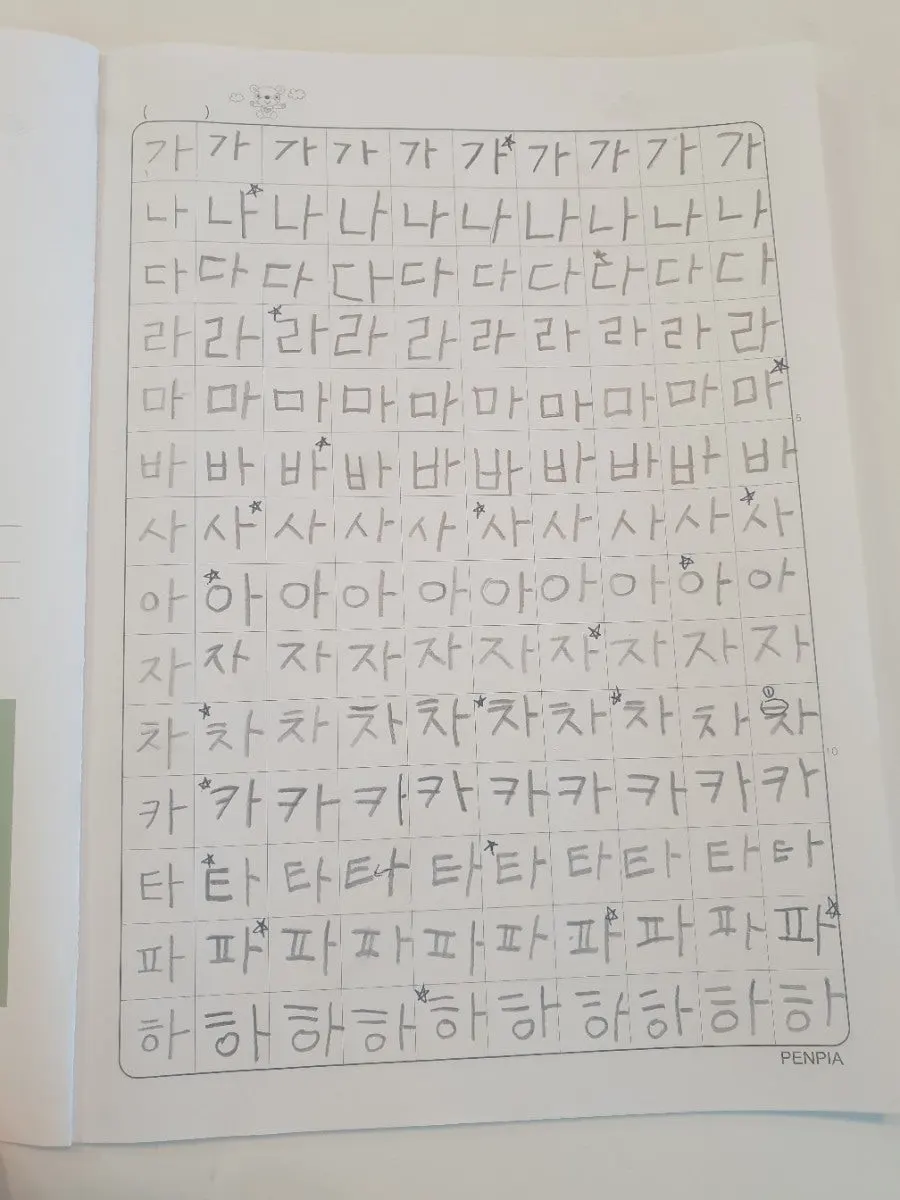 ( )
가 가 가 가 가 가 가 가 가 가
나 나 나 나 나 나 나 나 나 나
다 다 다 다 다 다 다 다 다 다
라 라 라 라 라 라 라 라 라 라
마 마 마 마 마 마 마 마 마 마
5
바 바 바 바 바 바 바 바 바 바
사 사 사 사 사 사 사 사 사 사
아 아 아 아 아 아 아 아 아 아
자 자 자 자 자 자 자 자 자 자
차 차 차 차 차 차 차 차 차 차
10
카 카 카 카 카 카 카 카 카 카
타 타 타 타 타 타 타 타 타 타
파 파 파 파 파 파 파 파 파 파
하 하 하 하 하 하 하 하 하 하
PENPIA